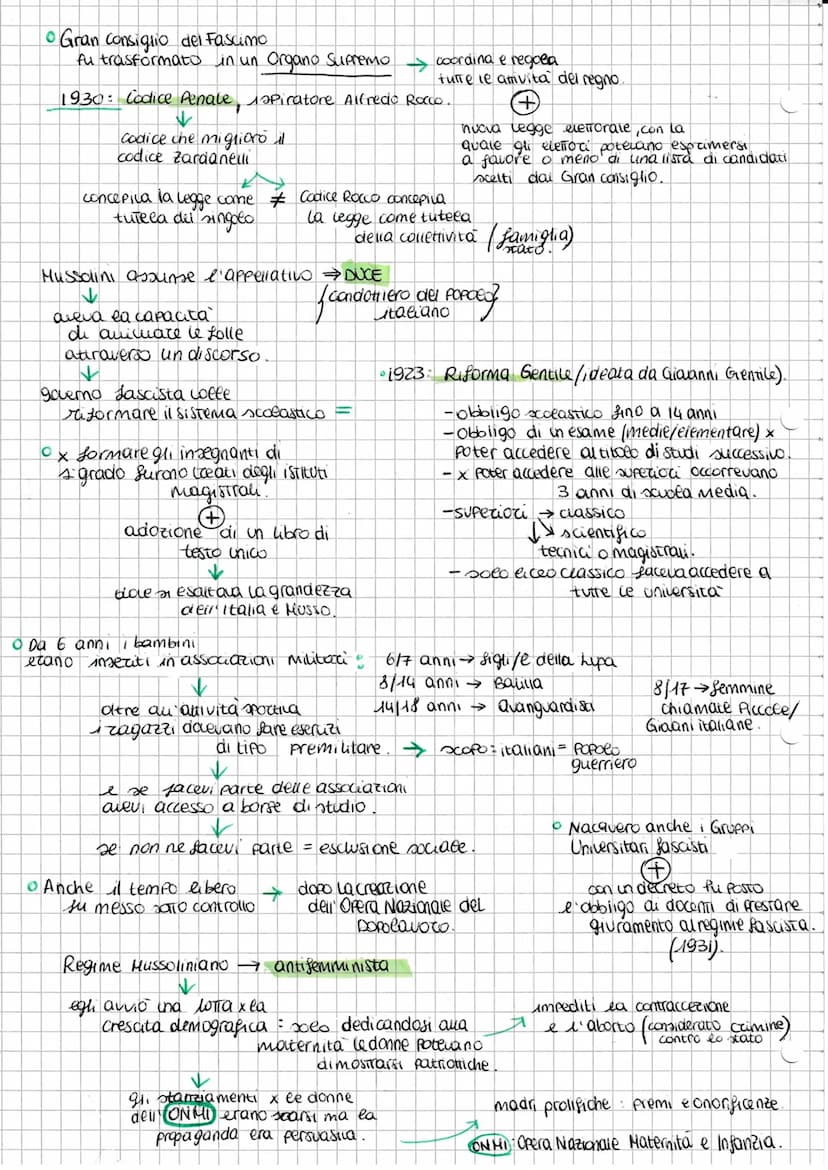 Gran Consiglio del Fascimo
fu trasformato in un Organo Supremo → coordina e regola
tutte le attività del regno.
+
nuova legge elettorale, con la
quale gli elettori potevano esprimersi
a favore o meno di una lista di candidati
scelti dai Gran consiglio.
1930: Codice Penale, ispiratore Alfredo Rocco.
↓
codice che migliorò il
codice Zardanelli
concepiva la legge come ≠ Codice Rocco concepiva
tutela del singolo
la legge come tutela
della collettività (famiglia)
stato.
Mussolini assunse l'appellativo ⇒ DUCE
{condottiero del POPOLO}
italiano
↓
aveva la capacità
di animare le folle
attraverso un discorso.
↓
governo fascista volle
riformare il sistema scolastico =
•1923: Riforma Gentile (ideata da Giovanni Gentile).
-obbligo scolastico fino a 14 anni
-obbligo di un esame (medie/elementare) x
poter accedere al titolo di studi successivo.
- x poter accedere alle superiori occorrevano
3 anni di scuola media.
-superiori → classico
↓↘ scientifico
tecnici o magistrali.
- solo liceo classico faceva accedere a
tutte le università
x formare gli insegnanti di
1° grado furono creati degli istituti
magistrali.
+
adozione di un libro di
testo unico
↓
dove si esaltava la grandezza
dell'Italia e Musso.
Da 6 anni i bambini
erano inseriti in associazioni militari: 6/7 anni → figli/e della lupa
8/14 anni → Balilla
14/18 anni → Avanguardisa
8/17 → femmine
chiamate Piccole/
Giovani italiane.
↓
oltre all'attività sportiva
i ragazzi dovevano fare esercizi
di tipo premilitare. → scopo: italiani = POPOLO
guerriero
↓
e se facevi parte delle associazioni
avevi accesso a borse di studio.
↓
se non ne facevi parte = esclusione sociale.
Nacquero anche i Gruppi
Universitari fascisti
+
con un decreto fu posto
l'obbligo ai docenti di prestare
giuramento al regime fascista.
(1931).
Anche il tempo libero → dopo la creazione
fu messo sotto controllo
dell'Opera Nazionale del
Dopolavoro.
Regime Mussoliniano → antifemminista
↓
egli avviò una lotta x la
crescita demografica: solo dedicandosi alla
maternità le donne potevano
dimostrarsi patriottiche.
impediti la contraccezione
e l'aborto (considerato crimine)
contro lo stato
↓
gli stanziamenti x le donne
dell'ONMI erano scarsi ma la
propaganda era persuasiva.
madri prolifiche: premi e onorificenze.
ONMI: Opera Nazionale Maternità e Infanzia.